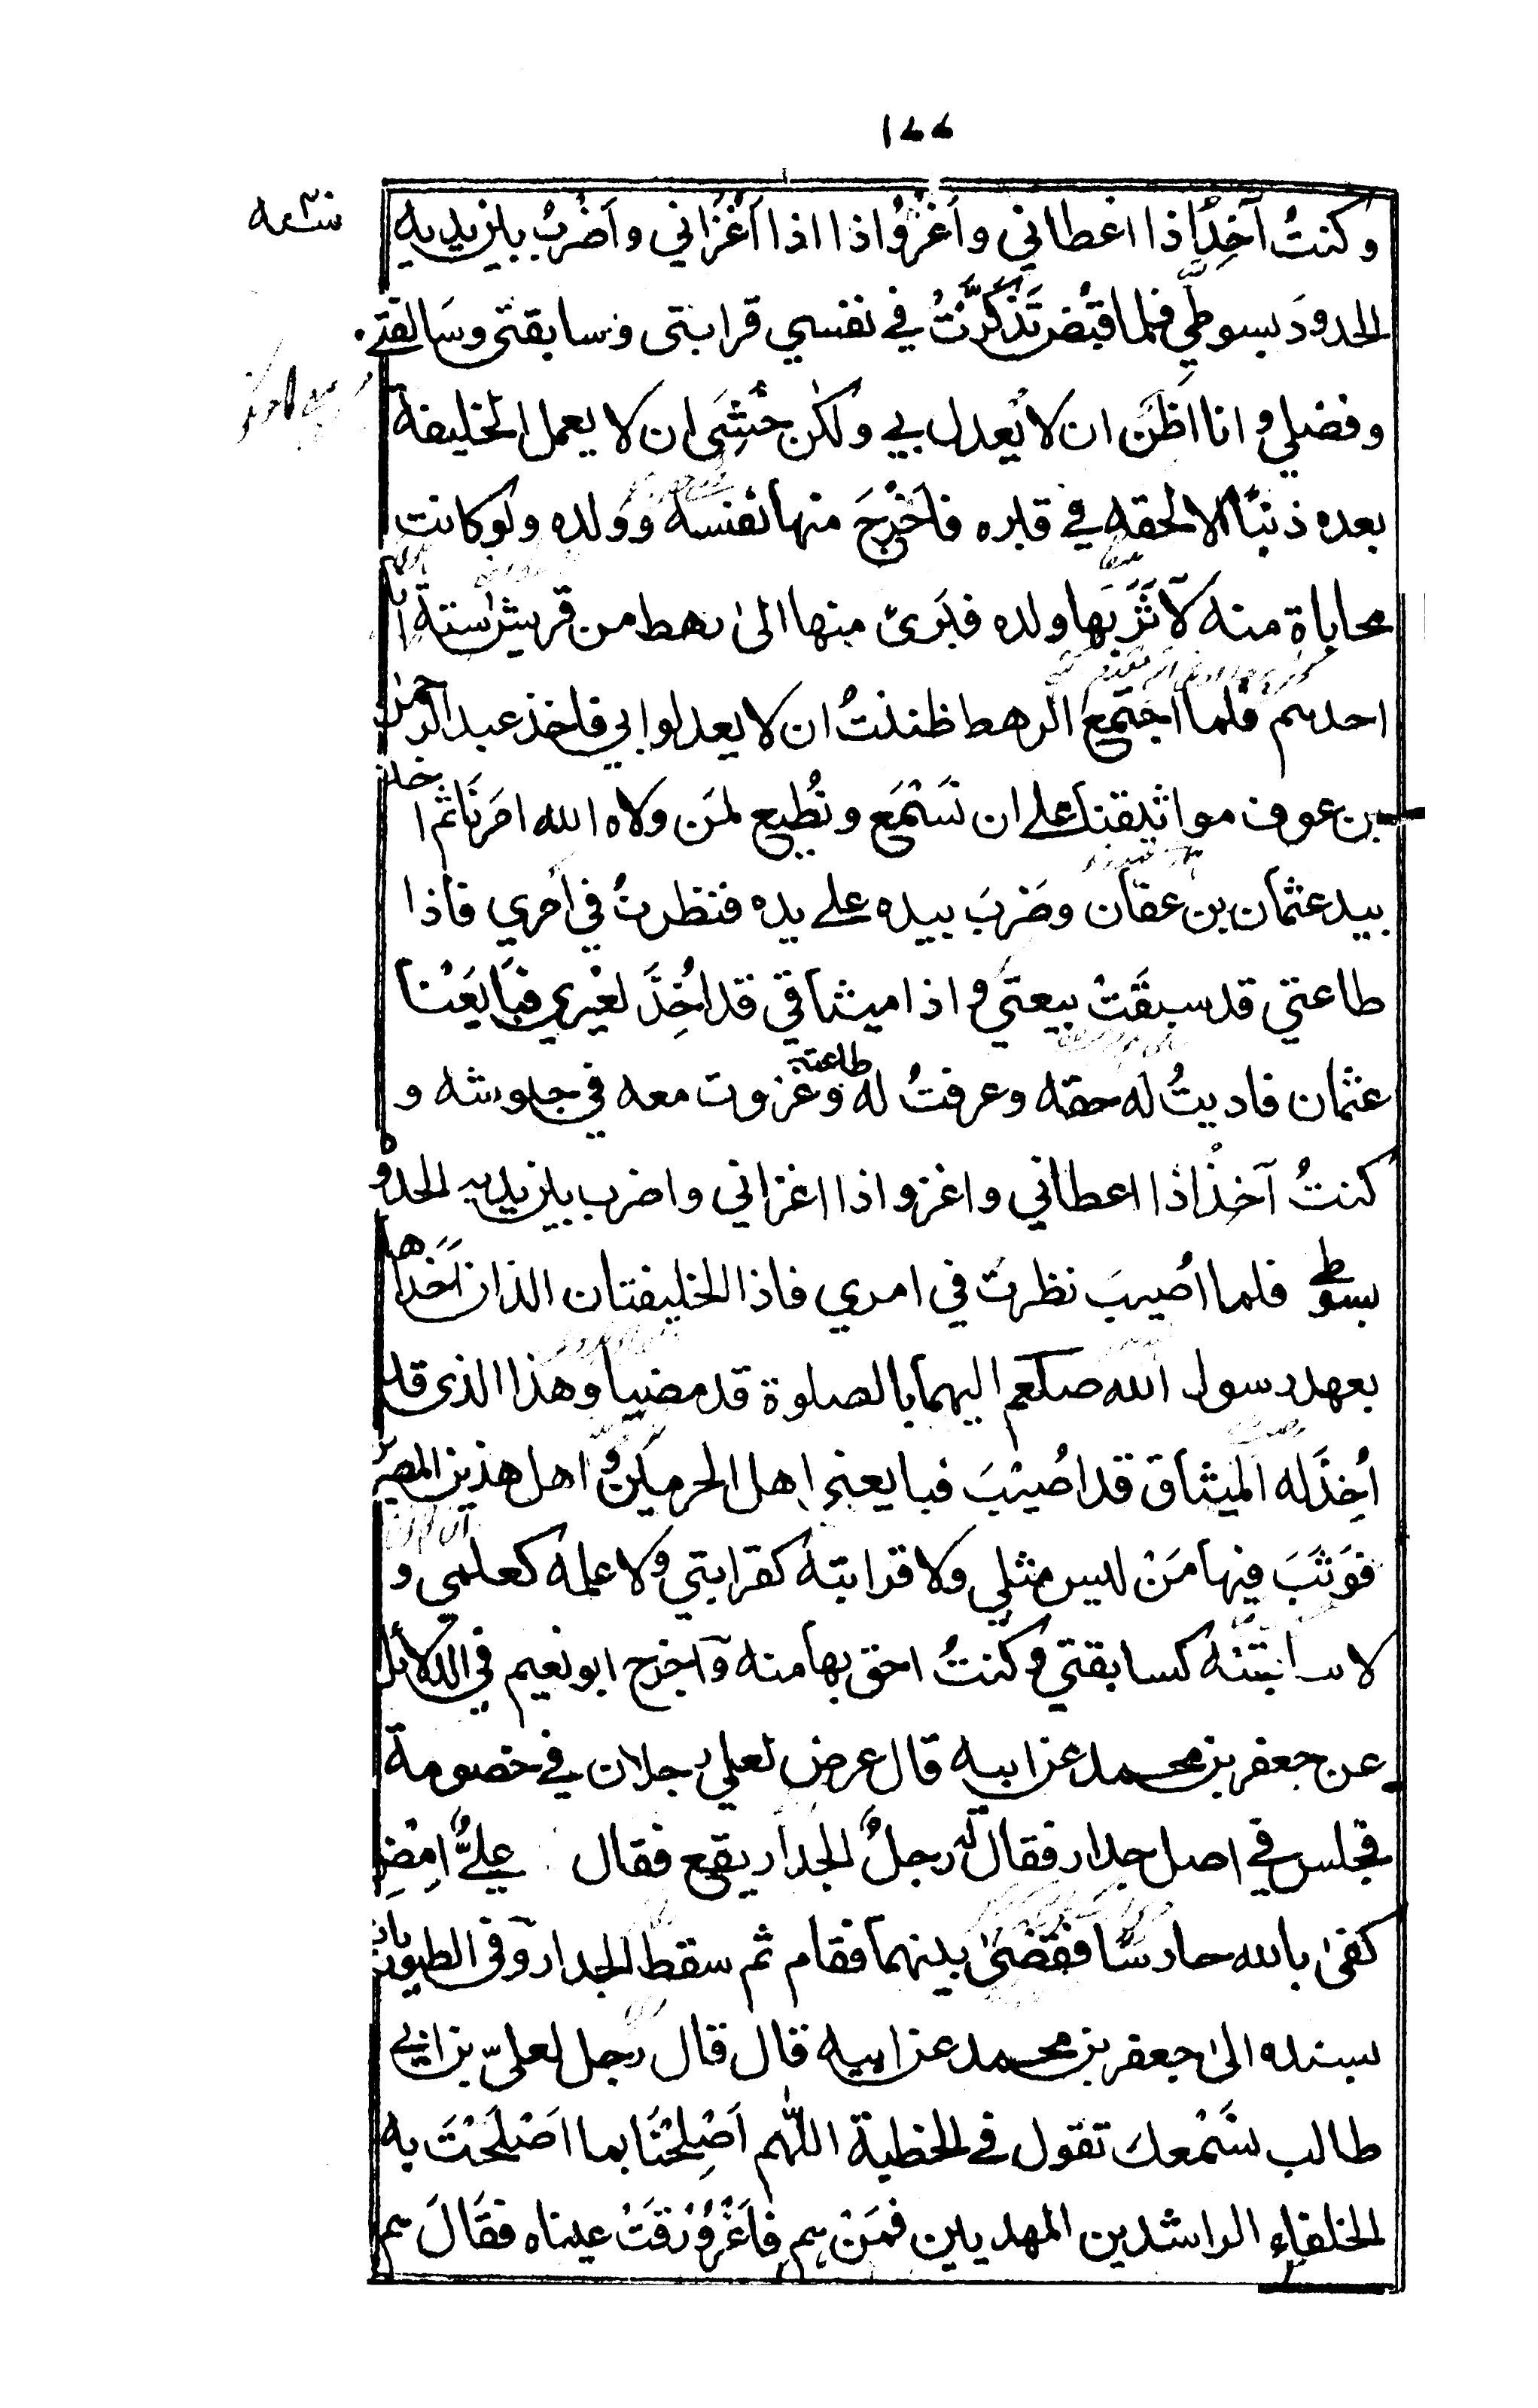 ١٦٦
وكنتُ آخِذًا اذا اعطاني واَغْزُوا اذا اغْزاني واَضْربُ بين يديه
الحدودَ بسوطي فلما قبُض تَذكَّرتُ في نفسي قرابتى وسابقتى وسَالفتے
وفضلي وانا اظنّ ان لا يُعدل بي ولكن خشِىَ ان لا يعمل الخليفة
بعده ذنبًا الا لحقه في قبره فاَخْرجَ منها نفسه وولده ولو كانت
محاباة منه لآثَرَ بها ولده فبَرئ منها الىٰ رهط من قريش ستة انا
احدهم فلما اجتمع الرهط ظننتُ ان لا يعدلوا بي فاخذ عبد الرحمن
بن عوف مواثيقنا علے ان نَسْمَع ونُطيع لمَن ولاه الله امرَنا ثم اخذ
بيد عثمان بن عفان وضَربَ بيده علے يده فنظرتُ في اَمري فاذا
طاعتي قد سبقَتْ بيعتي واذا ميثاقي قد اُخِذَ لغيري فبَايَعْنا
عثمان فاديتُ له حقه وعرفتُ له طاعته وغزوت معه في جيوشه و
كنتُ آخذ اذا اعطاني واغزو اذا اغزاني واضرب بين يديه الحدود
بسوطي فلما اُصيبَ نظرت في امري فاذا الخليفتان الذان اَخَذاها
بعهد رسول الله صلعم اليهما بالصلوة قد مضيا وهذا الذى قد
اُخِذَ له الميثاق قد اُصيْبَ فبايعني اهل الحرمين واهل هذين المصرين
فوَثَبَ فيها مَنْ ليس مثلي ولا قرابته كقرابتي ولا علمه كعلمي و
لا سابقته كسابقتي وكنتُ احق بها منه وآخرج ابو نعيم في الدلائل
عن جعفر بن محمد عن ابيه قال عرض لعلي رجلان في خصومة
فجلس في اصل جدار فقال له رجلٌ الجدار يقع فقال عليٌّ امْضِ
كفىٰ بالله حارسًا فقضىٰ بينهما فقام ثم سقط الجدار وفى الطيوريات
بسنده الىٰ جعفر بن محمد عن ابيه قال قال رجل لعليّ بن ابي
طالب نسْمعك تقول في الخطبة اللّٰهم اَصْلِحْنا بما اَصْلَحْتَ به
الخلفاء الراشدين المهديين فمَنْ هم فاغْرَوْرَقَتْ عيناه فقَالَ هم